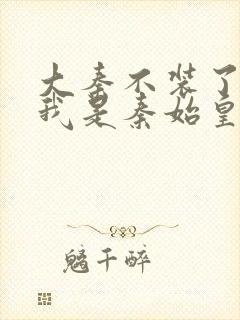 大秦不装了
我是秦始皇
魑千醉